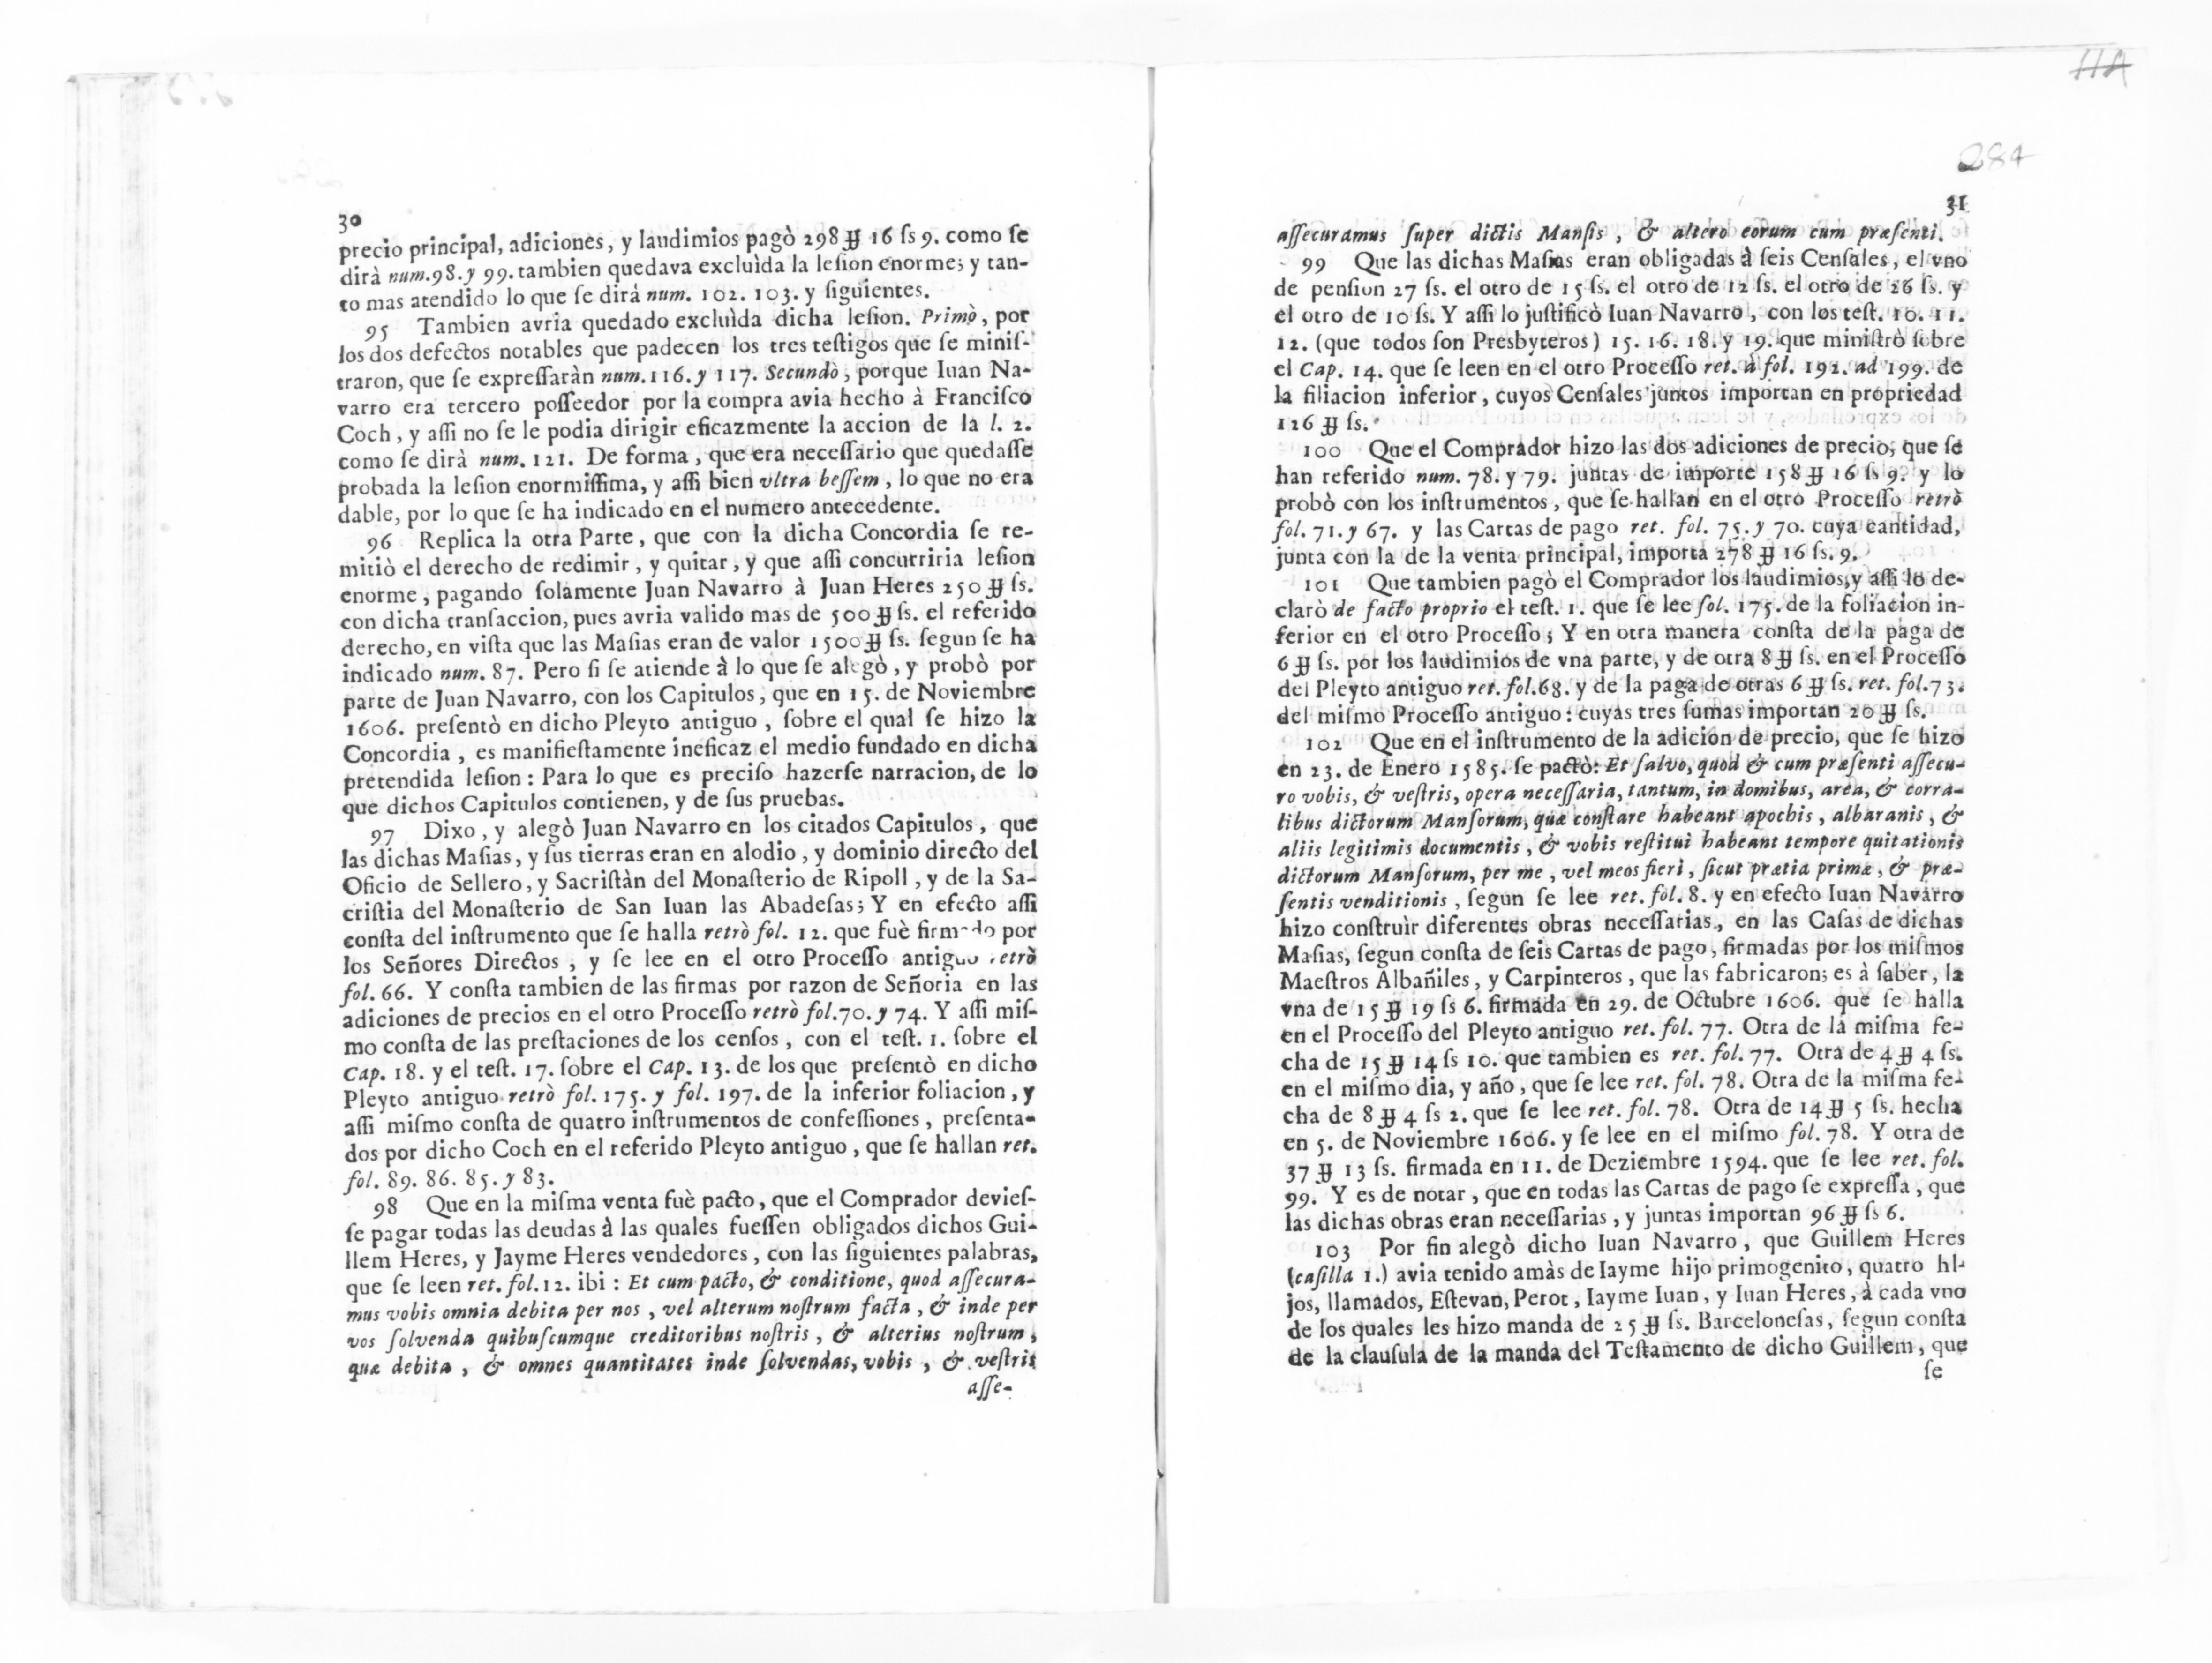 30
precio principal, adiciones, y laudimios pagò 298 ₶ 16 ſs 9. como ſe
dirà num.98. y 99. tambien quedava excluìda la leſion enorme; y tan-
to mas atendido lo que ſe dirá num. 102. 103. y ſiguientes.
95 Tambien avria quedado excluìda dicha leſion. Primò, por
los dos defectos notables que padecen los tres teſtigos que ſe miniſ-
traron, que ſe expreſſaràn num.116. y 117. Secundò, porque Iuan Na-
varro era tercero poſſeedor por la compra avia hecho à Franciſco
Coch, y aſſi no ſe le podia dirigir eficazmente la accion de la l. 2.
como ſe dirà num. 121. De forma, que era neceſſario que quedaſſe
probada la leſion enormiſſima, y aſſi bien vltra beſſem, lo que no era
dable, por lo que ſe ha indicado en el numero antecedente.
96 Replica la otra Parte, que con la dicha Concordia ſe re-
mitiò el derecho de redimir, y quitar, y que aſſi concurriria leſion
enorme, pagando ſolamente Juan Navarro à Juan Heres 250 ₶ ſs.
con dicha tranſaccion, pues avria valido mas de 500 ₶ ſs. el referido
derecho, en viſta que las Maſias eran de valor 1500 ₶ ſs. ſegun ſe ha
indicado num. 87. Pero ſi ſe atiende à lo que ſe alegò, y probò por
parte de Juan Navarro, con los Capitulos, que en 15. de Noviembre
1606. preſentò en dicho Pleyto antiguo, ſobre el qual ſe hizo la
Concordia, es manifieſtamente ineficaz el medio fundado en dicha
pretendida leſion: Para lo que es preciſo hazerſe narracion, de lo
que dichos Capitulos contienen, y de ſus pruebas.
97 Dixo, y alegò Juan Navarro en los citados Capitulos, que
las dichas Maſias, y ſus tierras eran en alodio, y dominio directo del
Oficio de Sellero, y Sacriſtàn del Monaſterio de Ripoll, y de la Sa-
criſtia del Monaſterio de San Iuan las Abadeſas; Y en efecto aſſi
conſta del inſtrumento que ſe halla retrò fol. 12. que fuè firmado por
los Señores Directos, y ſe lee en el otro Proceſſo antiguo retrò
fol. 66. Y conſta tambien de las firmas por razon de Señoria en las
adiciones de precios en el otro Proceſſo retrò fol.70. y 74. Y aſſi miſ-
mo conſta de las preſtaciones de los cenſos, con el teſt. 1. ſobre el
Cap. 18. y el teſt. 17. ſobre el Cap. 13. de los que preſentò en dicho
Pleyto antiguo retrò fol. 175. y fol. 197. de la inferior foliacion, y
aſſi miſmo conſta de quatro inſtrumentos de confeſſiones, preſenta-
dos por dicho Coch en el referido Pleyto antiguo, que ſe hallan ret.
fol. 89. 86. 85. y 83.
98 Que en la miſma venta fuè pacto, que el Comprador devieſ-
ſe pagar todas las deudas à las quales fueſſen obligados dichos Gui-
llem Heres, y Jayme Heres vendedores, con las ſiguientes palabras,
que ſe leen ret. fol.12. ibi: Et cum pacto, & conditione, quod aſſecura-
mus vobis omnia debita per nos, vel alterum noſtrum facta, & inde per
vos ſolvenda quibuſcumque creditoribus noſtris, & alterius noſtrum,
quæ debita, & omnes quantitates inde ſolvendas, vobis, & veſtris
aſſe-
284
31
aſſecuramus ſuper dictis Manſis, & altero eorum cum præſenti.
99 Que las dichas Maſias eran obligadas à ſeis Cenſales, el vno
de penſion 27 ſs. el otro de 15 ſs. el otro de 12 ſs. el otro de 26 ſs. y
el otro de 10 ſs. Y aſſi lo juſtificò Iuan Navarro, con los teſt. 10. 11.
12. (que todos ſon Presbyteros) 15. 16. 18. y 19. que miniſtrò ſobre
el Cap. 14. que ſe leen en el otro Proceſſo ret. à fol. 192. ad 199. de
la filiacion inferior, cuyos Cenſales juntos importan en propriedad
126 ₶ ſs.
100 Que el Comprador hizo las dos adiciones de precio, que ſe
han referido num. 78. y 79. juntas de importe 158 ₶ 16 ſs 9. y lo
probò con los inſtrumentos, que ſe hallan en el otro Proceſſo retrò
fol. 71. y 67. y las Cartas de pago ret. fol. 75. y 70. cuya cantidad,
junta con la de la venta principal, importa 278 ₶ 16 ſs. 9.
101 Que tambien pagò el Comprador los laudimios, y aſſi lo de-
clarò de facto proprio el teſt. 1. que ſe lee fol. 175. de la foliacion in-
ferior en el otro Proceſſo; Y en otra manera conſta de la paga de
6 ₶ ſs. por los laudimios de vna parte, y de otra 8 ₶ ſs. en el Proceſſo
del Pleyto antiguo ret. fol.68. y de la paga de otras 6 ₶ ſs. ret. fol.73.
del miſmo Proceſſo antiguo: cuyas tres ſumas importan 20 ₶ ſs.
102 Que en el inſtrumento de la adicion de precio, que ſe hizo
en 23. de Enero 1585. ſe pactò: Et ſalvo, quod & cum præſenti aſſecu-
ro vobis, & veſtris, opera neceſſaria, tantum, in domibus, area, & corra-
libus dictorum Manſorum, quæ conſtare habeant apochis, albaranis, &
aliis legitimis documentis, & vobis reſtitui habeant tempore quitationis
dictorum Manſorum, per me, vel meos fieri, ſicut prætia primæ, & præ-
ſentis venditionis, ſegun ſe lee ret. fol. 8. y en efecto Iuan Navarro
hizo conſtruìr diferentes obras neceſſarias, en las Caſas de dichas
Maſias, ſegun conſta de ſeis Cartas de pago, firmadas por los miſmos
Maeſtros Albañiles, y Carpinteros, que las fabricaron; es à ſaber, la
vna de 15 ₶ 19 ſs 6. firmada en 29. de Octubre 1606. que ſe halla
en el Proceſſo del Pleyto antiguo ret. fol. 77. Otra de la miſma fe-
cha de 15 ₶ 14 ſs 10. que tambien es ret. fol. 77. Otra de 4 ₶ 4 ſs.
en el miſmo dia, y año, que ſe lee ret. fol. 78. Otra de la miſma fe-
cha de 8 ₶ 4 ſs 2. que ſe lee ret. fol. 78. Otra de 14 ₶ 5 ſs. hecha
en 5. de Noviembre 1606. y ſe lee en el miſmo fol. 78. Y otra de
37 ₶ 13 ſs. firmada en 11. de Deziembre 1594. que ſe lee ret. fol.
99. Y es de notar, que en todas las Cartas de pago ſe expreſſa, que
las dichas obras eran neceſſarias, y juntas importan 96 ₶ ſs 6.
103 Por fin alegò dicho Iuan Navarro, que Guillem Heres
(caſilla 1.) avia tenido amàs de Iayme hijo primogenito, quatro hi-
jos, llamados, Eſtevan, Perot, Iayme Iuan, y Iuan Heres, à cada vno
de los quales les hizo manda de 25 ₶ ſs. Barceloneſas, ſegun conſta
de la clauſula de la manda del Teſtamento de dicho Guillem, que
ſe